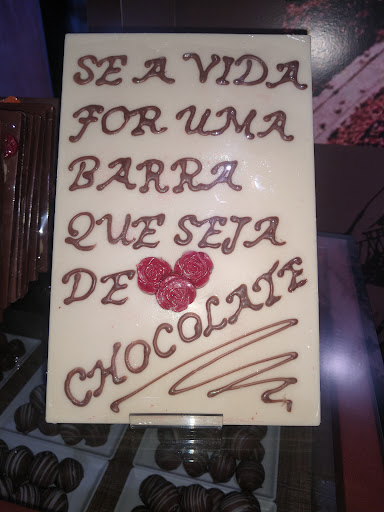 SE A VIDA
FOR UMA
BARRA
QUE SEJA
DE
CHOCOLATE